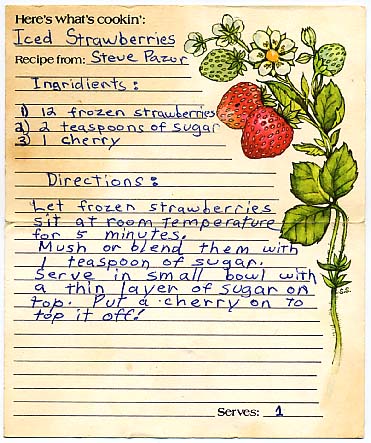 Here's what's cookin':
Iced Strawberries
Recipe from: Steve Pazur
Ingridients:
1) 12 frozen strawberries
2) 2 teaspoons of sugar
3) 1 cherry
Directions:
Let frozen strawberries
sit at room temperature
for 5 minutes.
Mush or blend them with
1 teaspoon of sugar.
Serve in small bowl with
a thin layer of sugar on
top. Put a cherry on to
top it off!
S.S.
Serves: 1